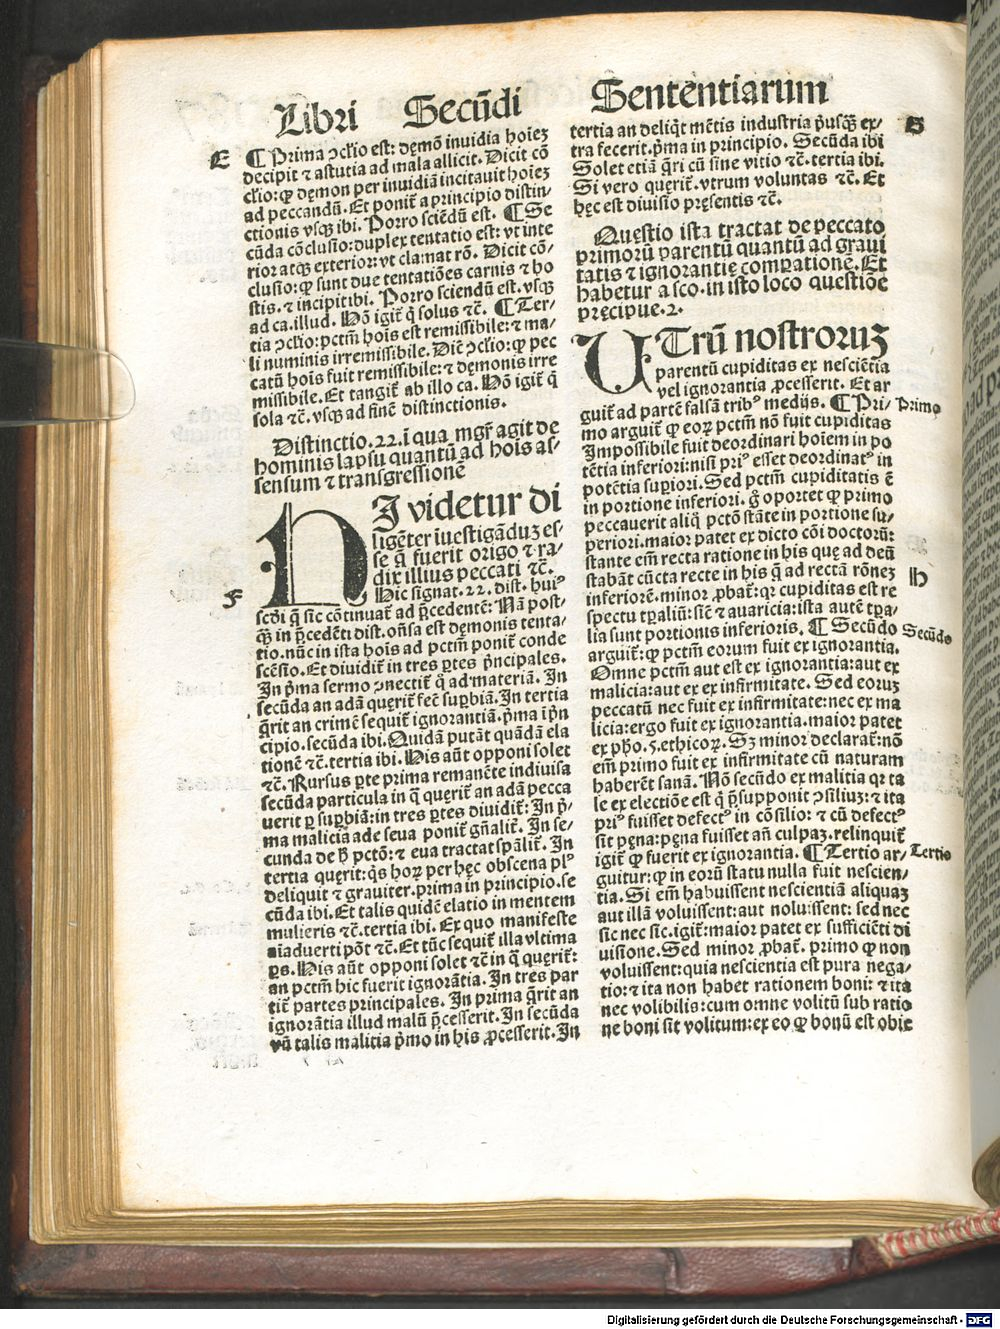 Libri Secūdi Sententiarum
E
¶ Prima ↄclꝰio est: demō inuidia hoieꝫ
decipit ⁊ astutia ad mala allicit. Dicit cō
clꝰio: ꝙ demon per inuidiā incitauit hoieꝫ
ad peccandū. Et poniť a principio distin-
ctionis vsqꝫ ibi. Porro sciendū est. ¶ Se
cūda cōclusio: duplex tentatio est: vt inte
rior atqꝫ exterior: vt clamat rō. Dicit cō-
clusio: ꝙ sunt due tentatiōes carnis ⁊ ho
stis. ⁊ incipit ibi. Porro sciendū est. vsqꝫ
ad ca. illud. Nō igiť q̄ solus ⁊č. ¶ Ter-
tia ↄclꝰio: pctm̄ hois est remissibile: ⁊ ma-
li numinis irremissibile. Dič ↄclꝰio: ꝙ pec
catū hois fuit remissibile: ⁊ demonis irre
missibile. Et tangiť ab illo ca. Nō igiť q̄
sola ⁊č. vsqꝫ ad finē distinctionis.
Distinctio. 22. ī qua mgř agit de
hominis lapsu quantū ad hois as-
sensum ⁊ transgressionē
HJ videtur di
ligēter īuestigāduꝫ es-
se q̄ fuerit origo ⁊ ra-
dix illius peccati ⁊č.
F
Hic signať. 22. dist. huiꝰ
scđi q̄ sic cōtinuať ad p̄cedentē: Nā post-
qꝫ in p̄cedēti dist. oñsa est demonis tenta-
tio. nūc in ista hois ad pctm̄ poniť conde
scēsio. Et diuidiť in tres ꝑtes p̄ncipales.
In p̄ma sermo ↄnectiť q̄ ad materiā. In
secūda an adā queriť fec̄ suꝑbiā. In tertia
q̄rit an crimē sequiť ignorantiā. p̄ma ī p̄n
cipio. secūda ibi. Quidā putāt quādā ela
tionē ⁊č. tertia ibi. His aūt opponi solet
⁊č. Rursus ꝑte prima remanēte indiuisa
secūda particula in q̄ queriť an adā pecca
uerit ꝑ suꝑbiā: in tres ꝑtes diuidiť: In p̄-
ma malicia ade seua poniť gñaliť. In se-
cunda de ꝟ pctō: ⁊ eua tractat sp̄aliť. In
tertia queriť: q̄s hoꝝ per hec obscena plꝰ
deliquit ⁊ grauiter. prima in principio. se
cūda ibi. Et talis quidē elatio in mentem
mulieris ⁊č. tertia ibi. Ex quo manifeste
aīaduerti pōt ⁊č. Et tūc sequiť illa vltima
ꝑs. His aūt opponi solet ⁊č in q̄ queriť:
an pctm̄ hic fuerit ignorātia. In tres par
tiť partes principales. In prima q̄rit an
ignorātia illud malū p̄cesserit. In secūda
vn̄ talis malitia p̄mo in his ꝓcesserit. In
tertia an deliq̄t mētis industria p̄usqꝫ ex-
G
tra fecerit. p̄ma in principio. Secūda ibi
Solet etiā q̄ri cū sine vitio ⁊č. tertia ibi.
Si vero queriť. vtrum voluntas ⁊č. Et
hec est diuisio presentis ⁊č.
Questio ista tractat de peccato
primorū parentū quantū ad graui
tatis ⁊ ignorantie comꝑationē. Et
habetur a sco. in isto loco questiōe
precipue. 2.
UTrū nostroruꝫ
parentū cupiditas ex nesciētia
vel ignorantia ꝓcesserit. Et ar
guiť ad partē falsā tribꝰ medijs. ¶ Pri-
Primo
mo arguiť ꝙ eoꝝ pctm̄ nō fuit cupiditas
Impossibile fuit deordinari hoīem in po
tētia inferiori: nisi priꝰ esset deordinatꝰ in
potētia suꝑiori. Sed pctm̄ cupiditatis ē
in portione inferiori. g̊ oportet ꝙ primo
peccauerit aliq̄ pctō stāte in portione su-
periori. maior patet ex dicto cōi doctorū:
stante em̄ recta ratione in his que ad deū
stabāt cūcta recte in his q̄ ad rectā rōneꝫ
h
inferiorē. minor ꝓbať: qꝛ cupiditas est re
spectu tꝑaliū: sicť ⁊ auaricia: ista autē tꝑa-
lia sunt portionis inferioris. ¶ Secūdo
Secūdo
arguiť: ꝙ pctm̄ eorum fuit ex ignorantia.
Omne pctm̄ aut est ex ignorantia: aut ex
malicia: aut ex ex infirmitate. Sed eoruꝫ
peccatū nec fuit ex infirmitate: nec ex ma
licia: ergo fuit ex ignorantia. maior patet
ex ph̄o. 5. ethicoꝝ. Sꝫ minor declarať: nō
em̄ primo fuit ex infirmitate cū naturam
haberēt sanā. Nō secūdo ex malitia qꝛ ta
le ex electiōe est q̄ p̄supponit ↄsiliuꝫ: ⁊ ita
priꝰ fuisset defectꝰ in cōsilio: ⁊ cū defectꝰ
sit pena: pena fuisset añ culpaꝫ. relinquiť
igiť ꝙ fuerit ex ignorantia. ¶ Tertio ar-
Tertio
guitur: ꝙ in eorū statu nulla fuit nescien-
tia. Si em̄ habuissent nescientiā aliquaꝫ
aut illā voluissent: aut noluissent: sed nec
sic nec sic. igiť: maior patet ex sufficiēti di
uisione. Sed minor ꝓbať. primo ꝙ non
voluissent: quia nescientia est pura nega-
tio: ⁊ ita non habet rationem boni: ⁊ ita
nec volibilis: cum omne volitū sub ratio
ne boni sit volitum: ex eo ꝙ bonū est obie
Digitalisierung gefördert durch die Deutsche Forschungsgemeinschaft - DFG